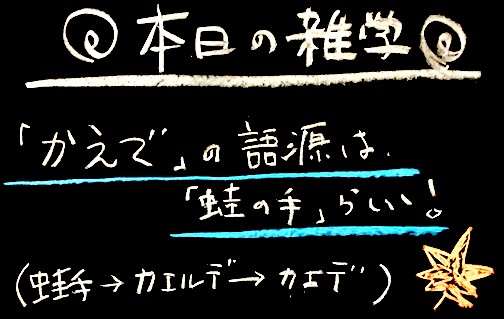 本日の雑学
「かえで」の語源は、
「蛙の手」らしい!
(蛙手→カエルデ→カエデ)